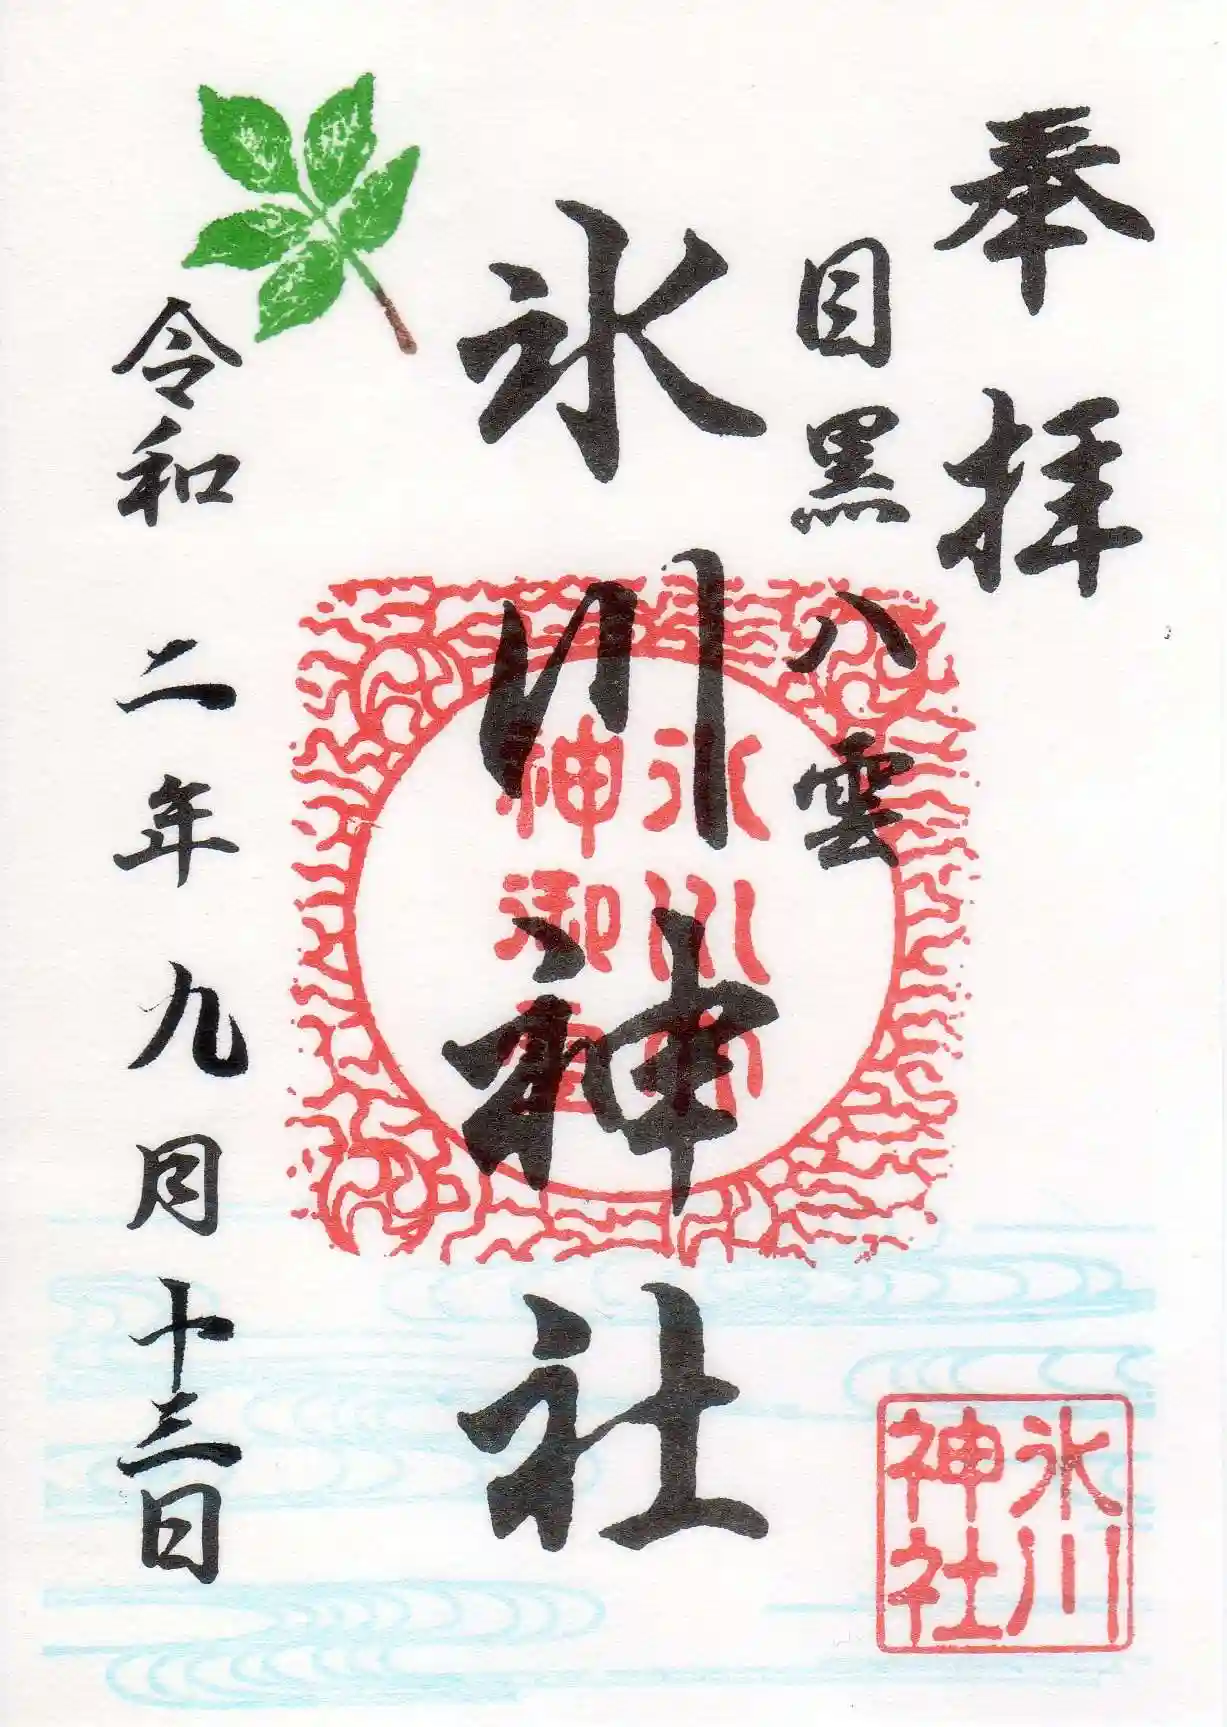 奉拝
目黒八雲
氷川神社
令和二年九月十三日
氷川
神御
氷川
神社